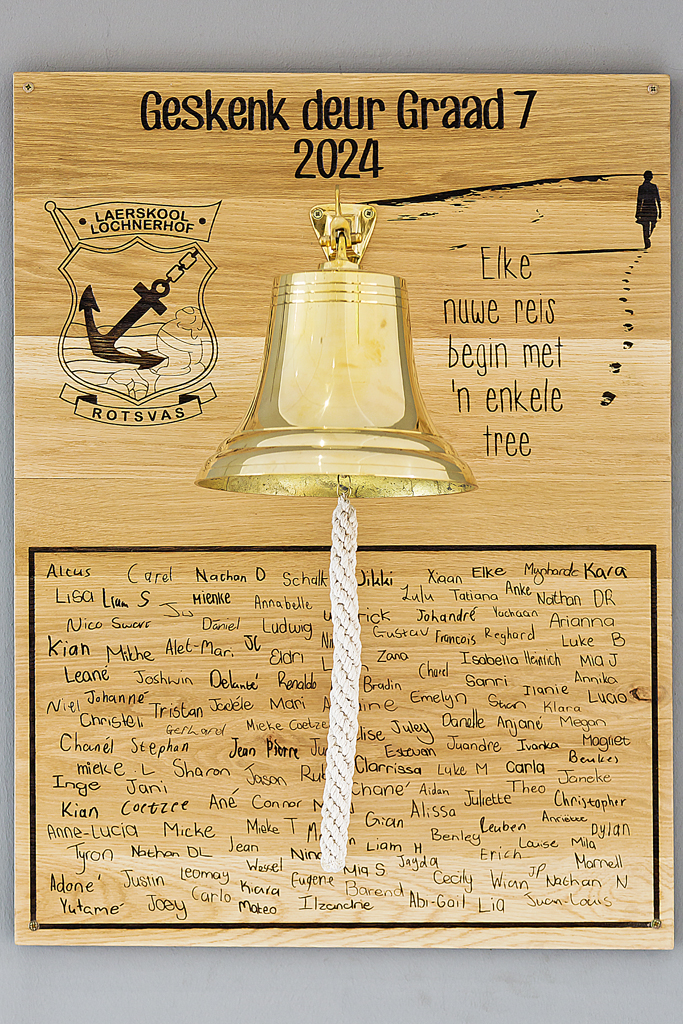 Geskenk deur Graad 7
2024
LAERSKOOL
LOCHNERHOF
ROTSVAS
Elke
nuwe reis
begin met
'n enkele
tree
Alcus Carel Nathan D Schalk Jikki Xiaan Elke Mynhardt Kara
Lisa Liam S Mienke Annabelle Lulu Tatiana Anke Nathan DR
Nico Swart Daniel Ludwig Johandré Arianna
Kian Mithe Alet-Mari JC Gustav Francois Reghard Luke B
Eldri Zana Isabella Heinrich Mia J
Leané Joshwin Delanté Renaldo Bradin Charl Sanri Ilanie Annika
Niel Johanné Tristan Joféle Mari Emelyn Klara Lucio
Christeli Gerhard Mieke Coetzee Juley Danelle Anjané Megan
Chanél Stephan Jean Pierre Estevan Juandre Ivanka Magriet
mieke L Sharon Jason Clarrissa Luke M Carla Janeke
Inge Jani Aidan Juliette Theo Christopher
Kian Coetzee Ané Connor Gian Alissa
Anne-Lucia Micke Mieke T Benley Leuben Louise Mila Dylan
Tyron Nathan DL Jean Liam H Jayda Erich Marnell
Adoné Justin Leomay Wessel Eugene Mia S Cecily Wian JP Nathan N
Yutamé Joey Carlo Kiara Mateo Ilzandrie Barend Abi-Gail Lia Juan-Louis